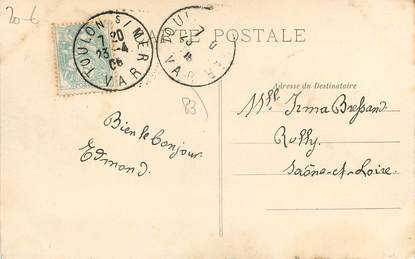 20-6
TOULON S/MER
7 20
23-4
06
VAR
TOUL
VAR
TE POSTALE
Adresse du Destinataire
83
Mlle Irma Bressand
Rully
Saône-et-Loire.
Bien le bonjour.
Edmond.